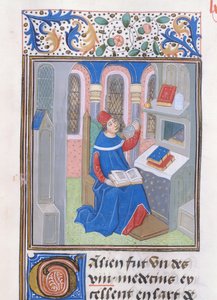 Galien fut vn des
medecins ex
cellent en lart de